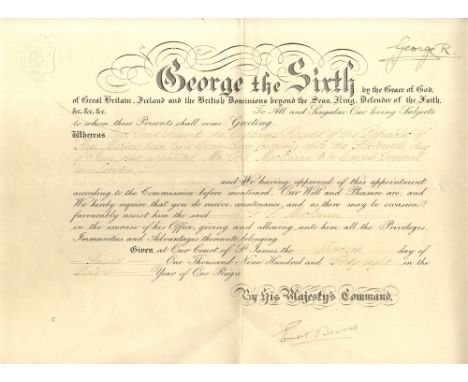 George R.
George the Sixth by the Grace of God,
of Great Britain, Ireland and the British Dominions beyond the Seas, King, Defender of the Faith,
&c. &c. &c. To All and Singular Our loving Subjects
to whom these Presents shall come, Greeting.
Whereas the Regent of the Republic of
San Marino have by a Commission bearing date the day
of appointed Mr. as Consul General
in London,
and We having approved of this appointment
according to the Commission before mentioned, Our Will and Pleasure are, and
We hereby require that you do receive, countenance, and as there may be occasion,
favourably assist him the said
in the exercise of his Office, giving and allowing unto him all the Privileges,
Immunities and Advantages thereunto belonging.
Given at Our Court of St. James, the day of
August One Thousand Nine Hundred and Forty-eight in the
Year of Our Reign.
By His Majesty's Command.
Ernest Bevin